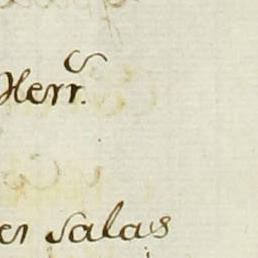 Herr.
er Salas